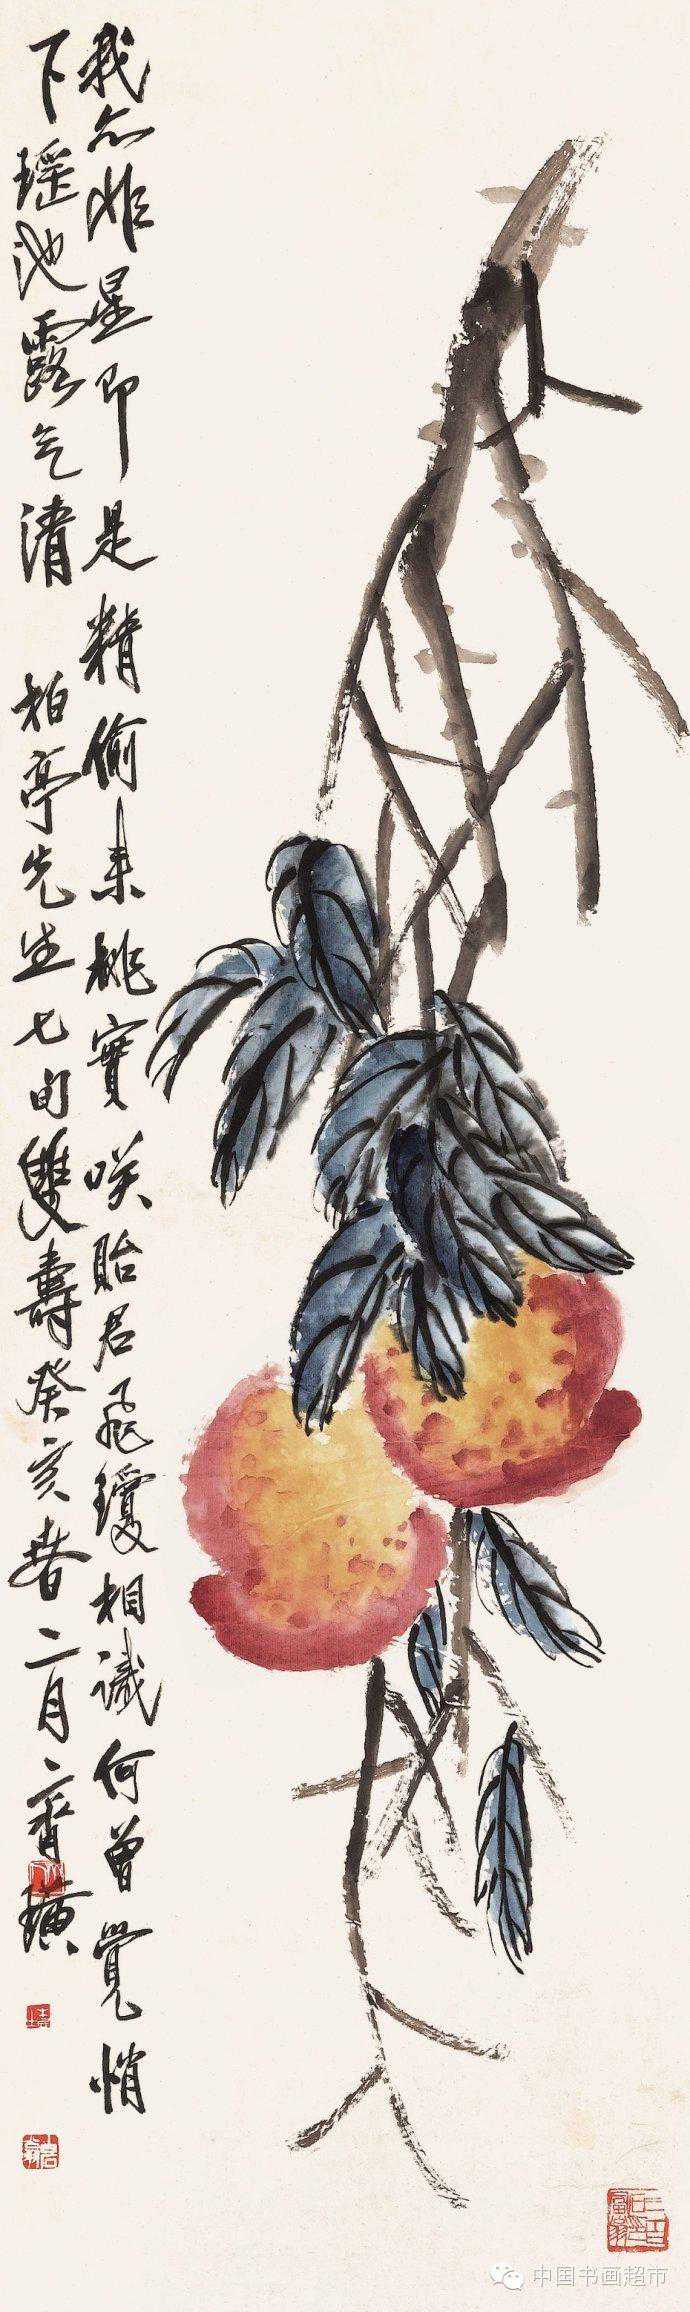 我亦非星即是精偷来桃實咲貽君飛瓊相識何曾覺悄
下瑶池露气清 柏亭先生七旬雙壽癸亥春二月齊璜
中国书画超市